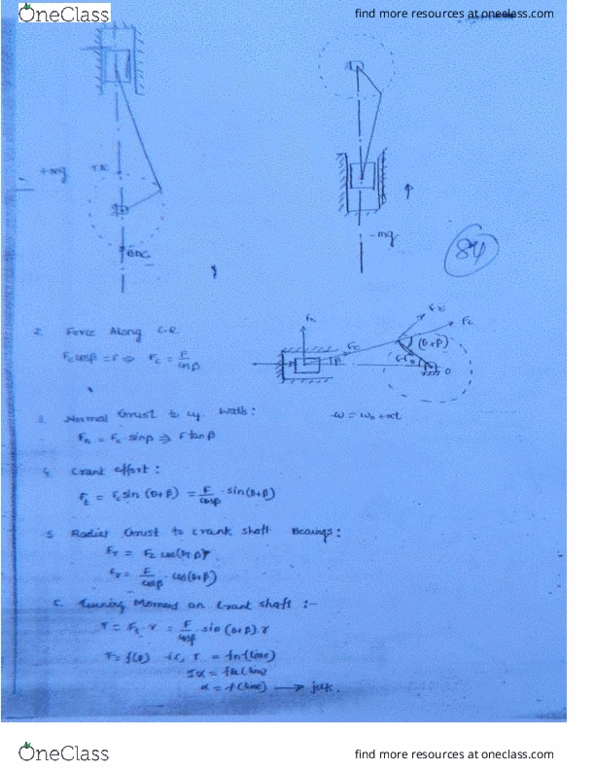 OneClass
find more resources at oneclass.com
BDC
-mg
84
2. Force Along C.R
Fc cosβ = F ⇒ Fc = F/cosβ
3. Normal thrust to cy. walls:
ω = ω₀ + αt
Fn = Fc · sinβ ⇒ F tanβ
4. Crank effort:
Ft = Fc sin (θ+β) = F/cosβ · sin(θ+β)
5 Radial thrust to crank shaft Bearings:
Fr = Fc cos(θ+β)
Fr = F/cosβ · cos(θ+β)
Turning Moment on crank shaft :-
T = Ft · r = F/cosβ sin (θ+β) . r
T = f(θ) i.e., T = fn(time)
Iα = fn(time)
α = f(time) → jerk.
OneClass
find more resources at oneclass.com